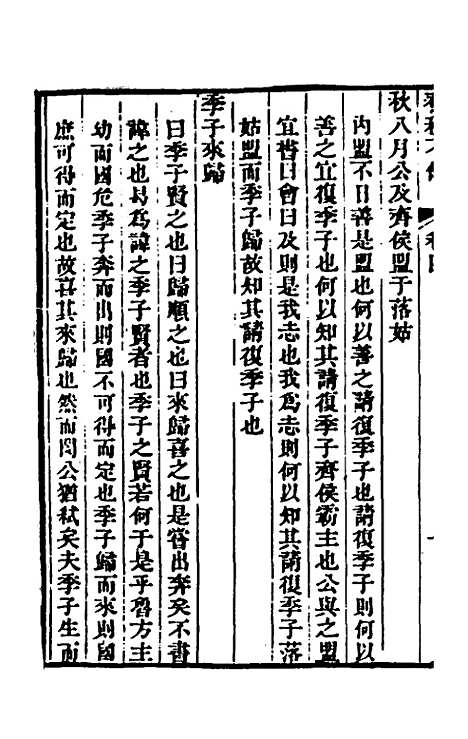 秋八月公及齊侯盟于落姑
內盟不日善是盟也何以善之請復季子也請復季子則何以
善之宜復季子也何以知其請復季子齊侯霸主也公與之盟
宜書曰會曰及則是我志也我爲志則何以知其請復季子落
姑盟而季子歸故知其請復季子也
季子來歸
曰季子賢之也曰歸順之也曰來歸喜之也是嘗出奔矣不書
諱之也曷爲諱之季子賢者也季子之賢若何于是乎魯方主
幼而國危季子奔而出則國不可得而定也季子歸而來則國
庶可得而定也故喜其來歸也然而閔公猶弒矣夫季子生而